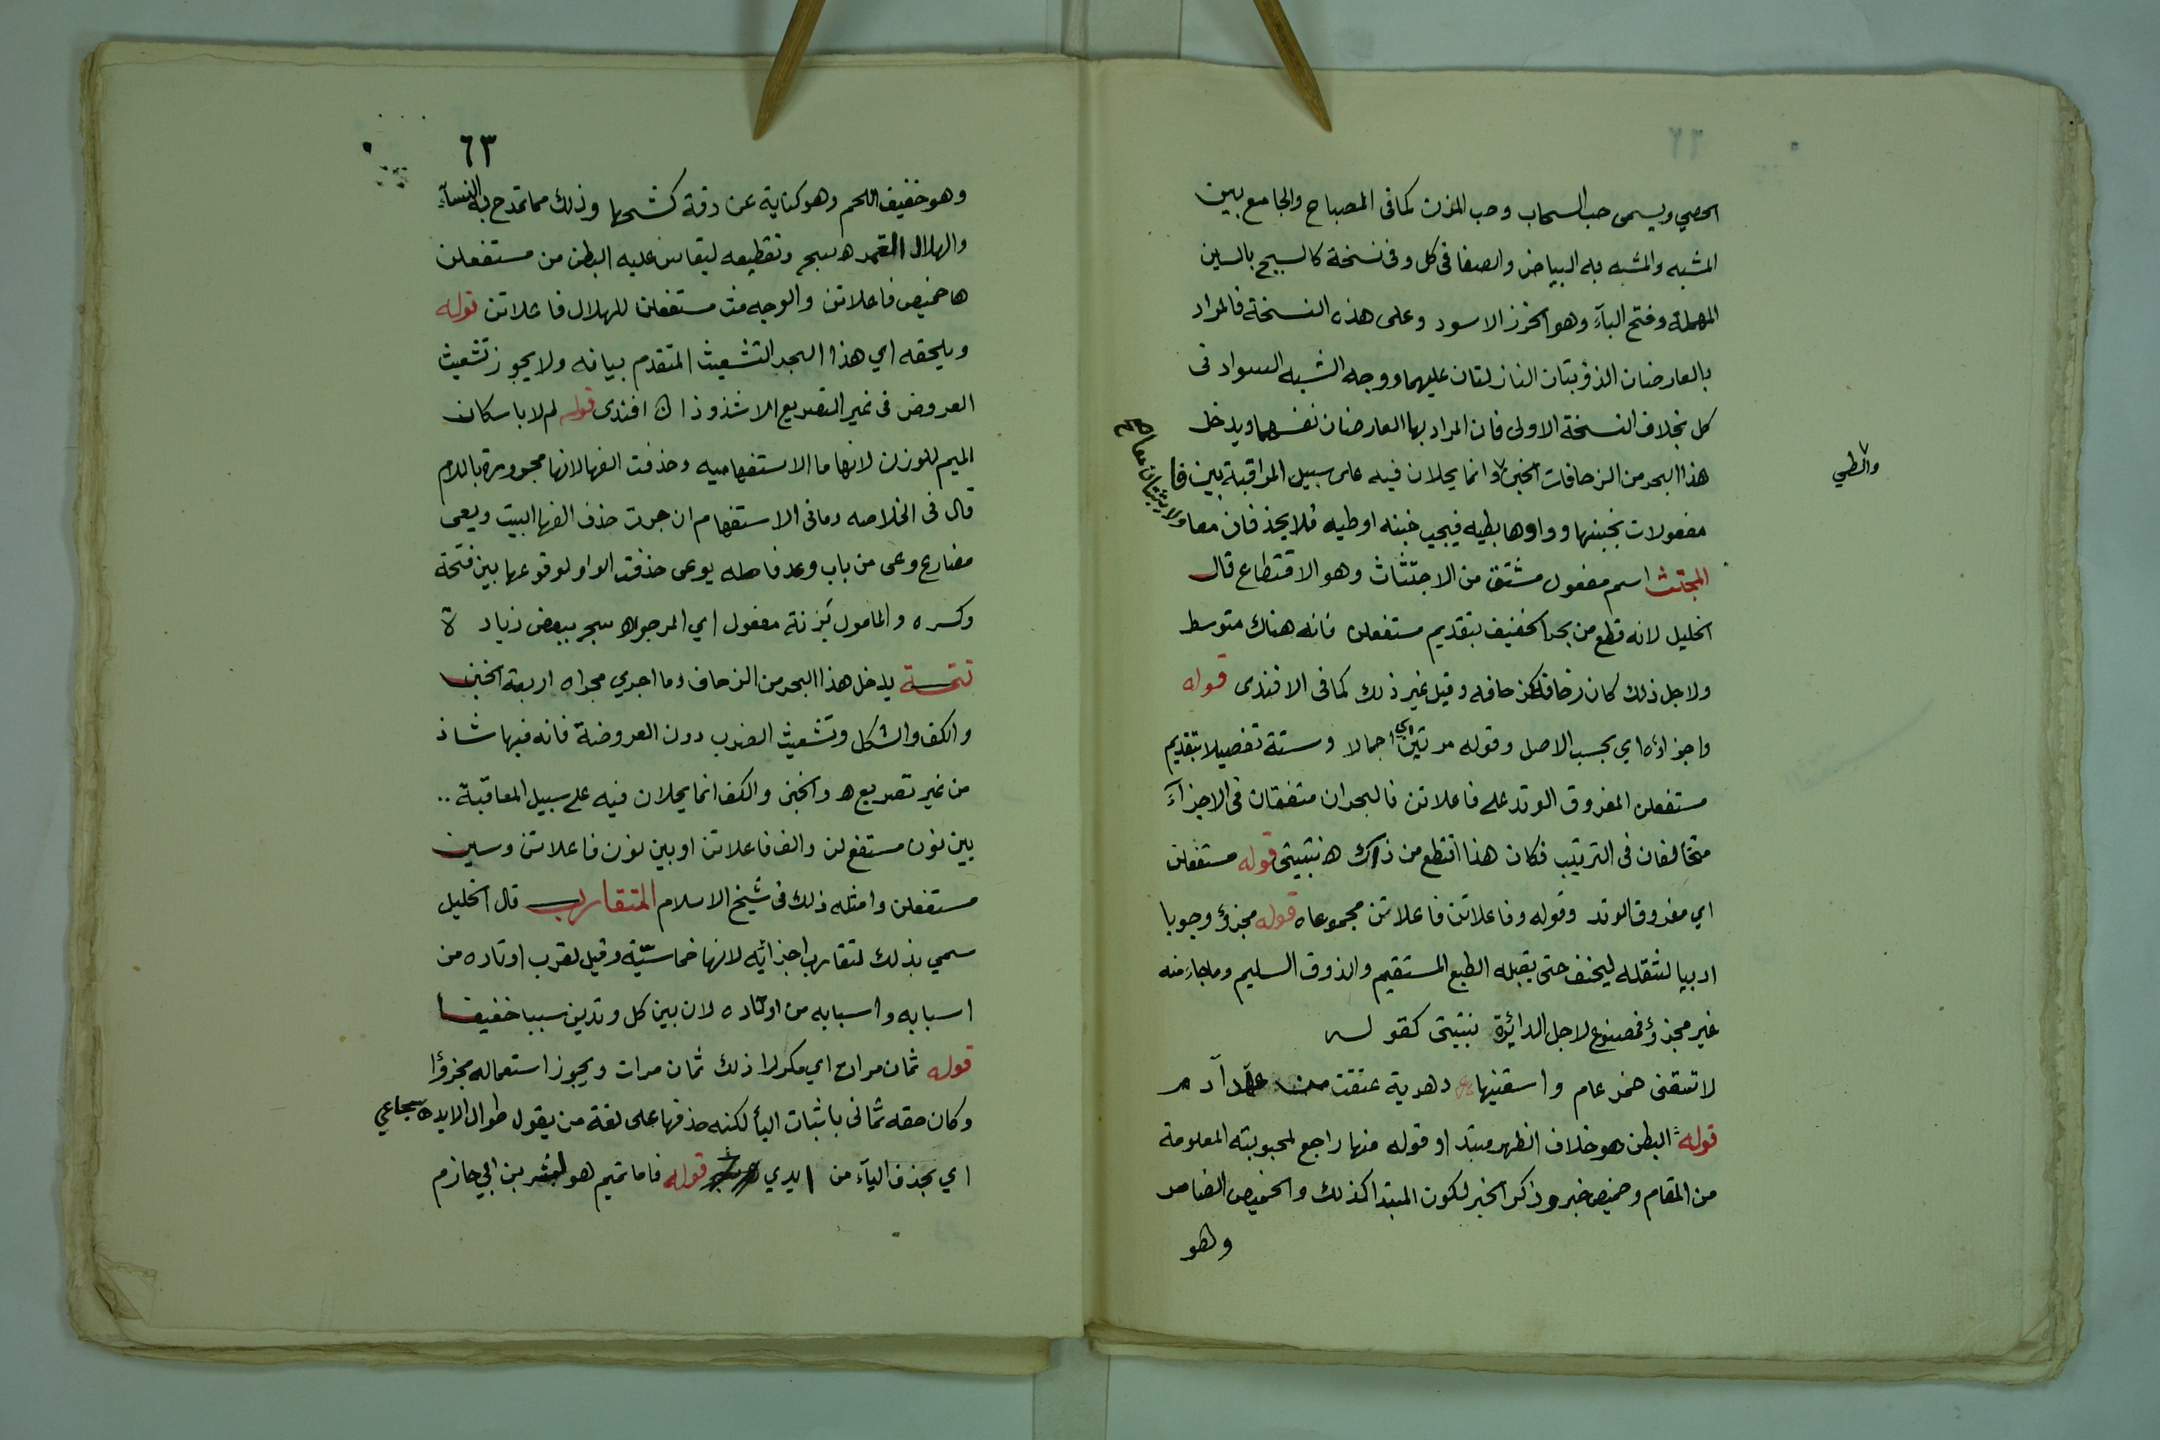 الحصي ويسمى حب السحاب وحب المزن كما في المصباح والجامع بين
المشبه والمشبه به البياض والصفا في كل وفي نسخة كالسبج بالسين
المهملة وفتح البآء وهو الخرز الاسود وعلى هذه النسخة فالمراد
بالعارضان الذؤبتان النازلتان عليهما ووجه الشبه السواد في
كل بخلاف النسخة الاولى فان المراد بها العارضان نفسهما ويدخل
هذا البحر من الزحافات الخبن وانما يحلان فيه على سبيل المراقبة بين فا
والطي
مفعولات بخبنها وواوها بطيه فيجب خبنه او طيه فلا يحذفان معا ولا يثبتان معا
المجتث اسم مفعول مشتق من الاجتثاث وهو الاقتطاع قال
الخليل لانه قطع من بحر الخفيف بتقديم مستفعلن فانه هناك متوسط
ولاجل ذلك كان زحافه كزحافه وقيل غير ذلك كما في الافندى قوله
واجزاؤه اي بحسب الاصل وقوله مرتين اي اجمالا وستة تفصيلا بتقديم
مستفعلن المفروق الوتد على فاعلاتن فالبحران متفقان في الاجزآء
متخالفان في الترتيب فكان هذا اقتطع من ذاك ه نبتيتى قوله مستفعلن
اي مفروق الوتد وقوله وفاعلاتن فاعلاتن مجموعا ه قوله مجزؤ وجوبا
ادبيا لثقله ليخف حتى يقبله الطبع المستقيم والذوق السليم وما جاء منه
غير مجزؤ فمصنوع لاجل الدائرة نبتيتى كقوله
لا تسقنى خمر عام واسقنيها دهرية عتقت
قوله البطن هو خلاف الظهر مبتدا وقوله منها راجع لمحبوبته المعلومة
من المقام وخميص خبر وذكر الخبر لكون المبتدا كذلك والخميص الضامر
وهو
٦٣
وهو خفيف اللحم وهو كناية عن دقة كشحها وذلك مما تمدح به النسآء
والهلال القمر ه سجر وتقطيعه ليقاس عليه البطن من مستفعلن
ها خميص فاعلاتن والوجه مث مستفعلن للهلال فاعلاتن قوله
ويلحقه اي هذا البحر التشعيث المتقدم بيانه ولا يجوز تشعيث
العروض في غير التصريع الا شذوذا ه افندى قوله لم لا باسكان
الميم للوزن لانها ما الاستفهاميه وحذفت الفها لانها مجرورة باللام
قال في الخلاصه وما في الاستفهام ان جرت حذف الفها البيت ويعى
مضارع وعى من باب وعد فاصله يوعى حذفت الواو لوقوعها بين فتحة
وكسره والمامول بزنة مفعول اي المرجو ه سجر ببعض زيادة
تتمة يدخل هذا البحر من الزحاف وما اجري مجراه اربعة الخبن
والكف والشكل وتشعيث الضرب دون العروضة فانه فيها شاذ
من غير تصريع ه والخبن والكف انما يحلان فيه على سبيل المعاقبة
بين نون مستفع لن والف فاعلاتن او بين نون فاعلاتن وسين
مستفعلن وامثله ذلك في شيخ الاسلام المتقارب قال الخليل
سمي بذلك لتقارب اجزائه لانها خماسية وقيل لقرب اوتاده من
اسبابه واسبابه من اوتاده لان بين كل وتدين سببا خفيفا
قوله ثمان مرات اي مكررا ذلك ثمان مرات ويجوز استعماله مجزؤا
وكان حقه ثمانى باثبات اليأ لكنه حذفها على لغة من يقول طوال الايد ه سجاعي
اي بحذف اليآء من ايدي قوله فاما تميم هو لبشر بن ابي حازم